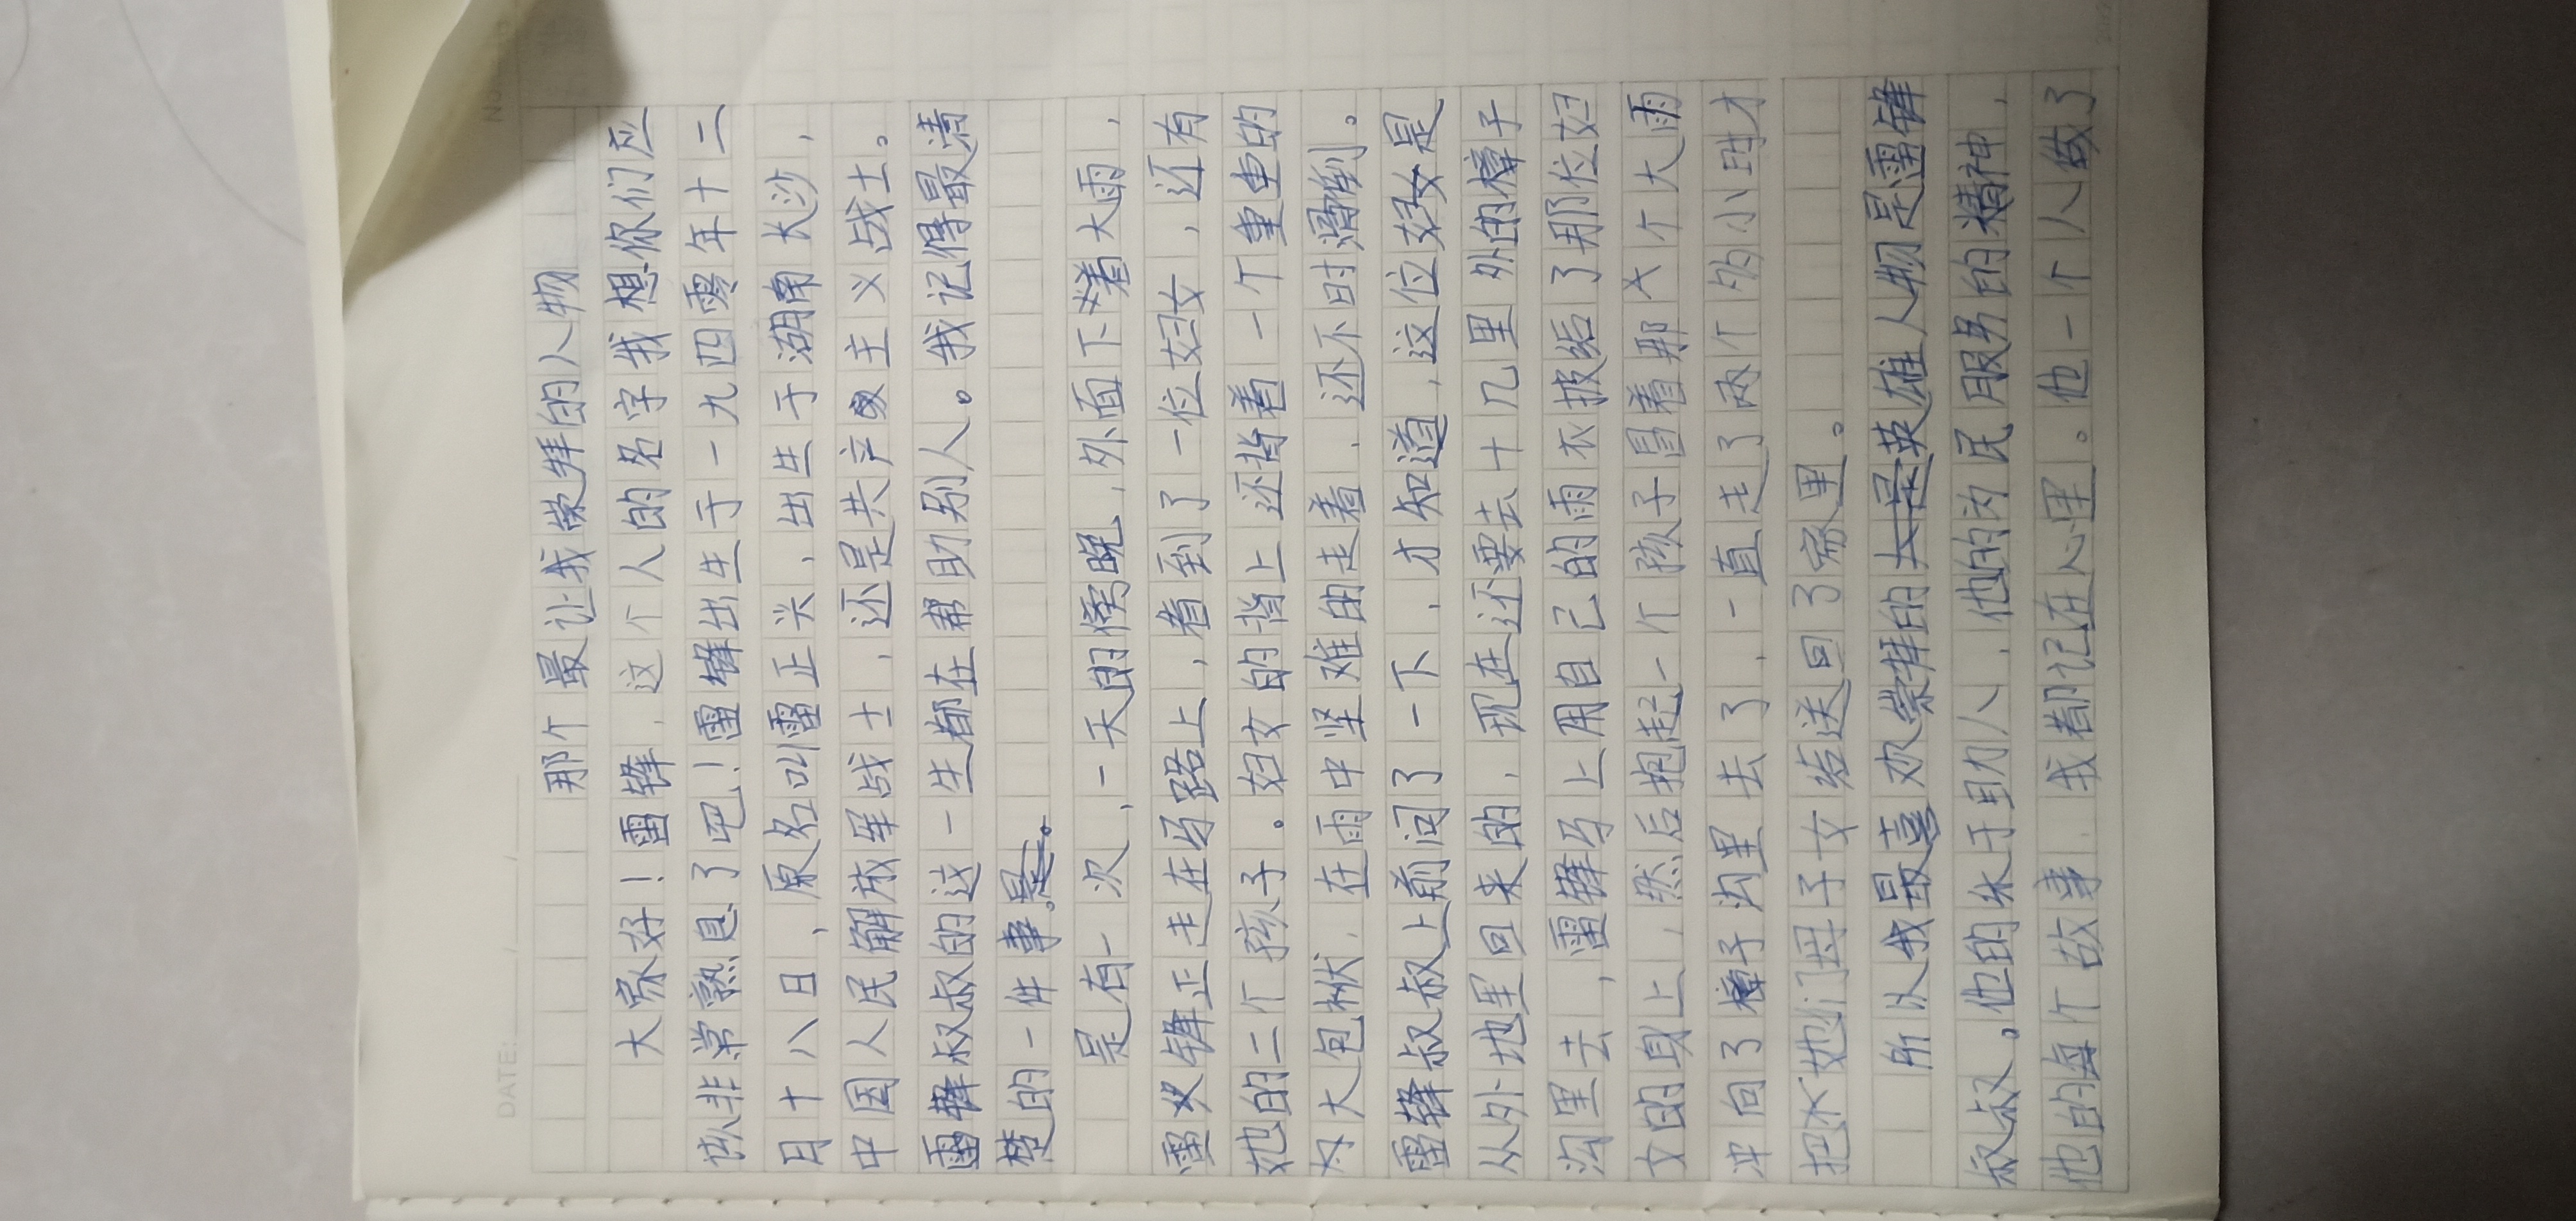 DATE:
那个最让我崇拜的人物
大家好！雷锋，这个人的名字我想你们应
该非常熟息了吧！雷锋出生于一九四零年十二
月十八日，原名叫雷正兴，出生于湖南长沙，
中国人民解放军战士，还是共产主义战士。
雷锋叔叔的这一生都在帮助别人。我记得最清
楚的一件事。
是有一次，一天的傍晚，外面下着大雨，
雷锋正走在马路上，看到了一位妇女，还有
她的二个孩子。妇女的背上还背着一个重重的
大包袱，在雨中坚难的走着，还不时滑倒。
雷锋叔叔上前问了一下，才知道，这位妇女是
从外地里回来的，现在还要去十几里外的樟子
沟里去，雷锋马上用自己的雨衣披给了那位妇
女的身上，然后抱起一个孩子冒着那个大雨
冲向了樟子沟里去了，一直走了两个多小时才
把她们母子女给送回了家里。
所以我最喜欢崇拜的英雄人物是雷锋
叔叔。他的乐于助人，他的为民服务的精神，
他的每个故事，我都记在心里。他一个人做了